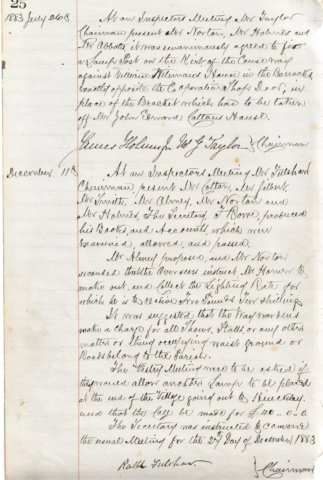 25
1883 July 26th At an Inspectors Meeting Mr Taylor
Chairman present Mr Norton, Mr Holmes and
Mr Abbott, it was unanimously agreed to fix
a Lamp Post on the Kerb of the Causeway
against William House in the Barracks
exactly opposite the Cooperative Shop Door, in
place of the Bracket which has to be taken
off Mr John Edward Cottons House.
James Holmes Jr W G Taylor } Chairman
December 11th At an Inspectors Meeting Mr
Chairman, present Mr Cotton, Mr Gilbert
Mr Smith, Mr Almey, Mr Norton and
Mr Holmes, The Secretary, T Bown, produced
his Books, and Accounts, which were
examined, allowed, and passed.
Mr Almey proposed, and Mr Norton
seconded that the Overseers instruct Mr to
make out, and Collect the Lighting Rate, for
which he is to receive Four Pounds Ten Shillings
It was suggested that the Waywardens
make a Charge for all Shows, Stalls or any other
matter or thing occupying waist ground or
Roads belong to the Parish.
The Vestry Meeting were to be asked if
they would allow another Lamp to be placed
at the end of the Village going out to Hinckley.
and that the Call be made for £40.0.0
The Secretary was instructed to convene
the usual Meeting for the 27 Day of December 1883
Ralph } Chairman